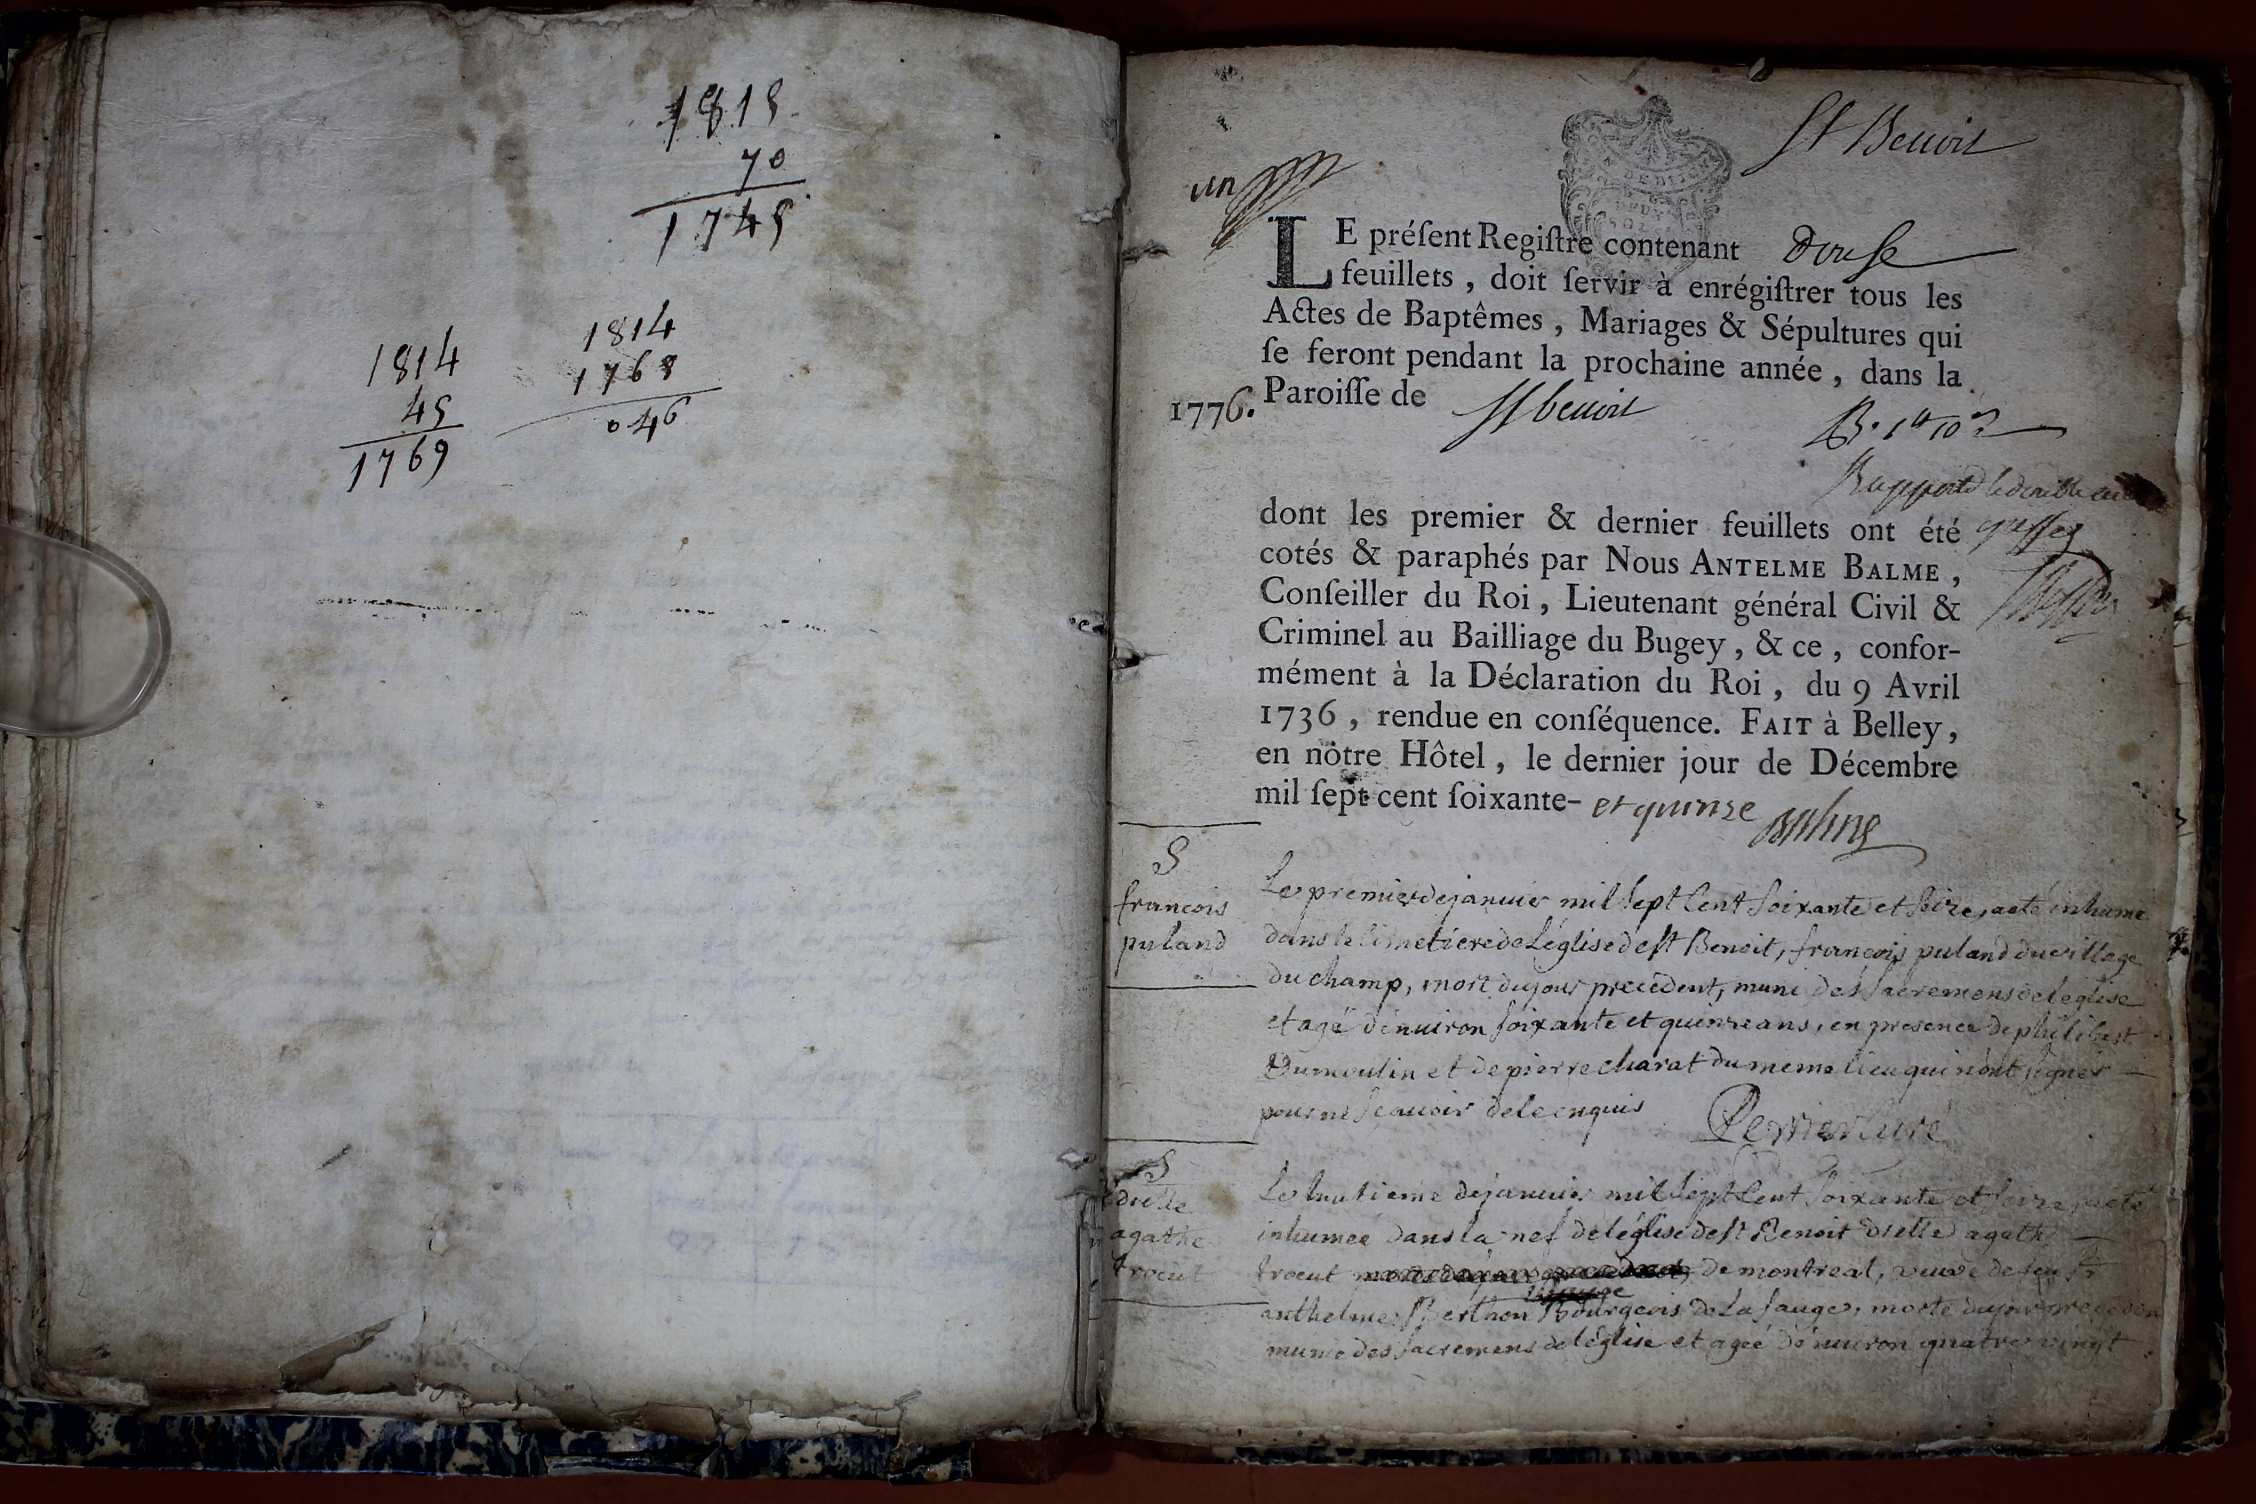 1815
70
1745
1814
45
1769
1814
1768
046
St Benoit
un
LE préſent Regiſtre contenant Douſe
feuillets, doit ſervir à enrégiſtrer tous les
Actes de Baptêmes, Mariages & Sépultures qui
ſe feront pendant la prochaine année, dans la
1776. Paroiſſe de St benoit
dont les premier & dernier feuillets ont été
cotés & paraphés par Nous ANTELME BALME,
Conſeiller du Roi, Lieutenant général Civil &
Criminel au Bailliage du Bugey, & ce, confor-
mément à la Déclaration du Roi, du 9 Avril
1736, rendue en conſéquence. FAIT à Belley,
en nôtre Hôtel, le dernier jour de Décembre
mil ſept cent ſoixante- et quinze Balme
S
francois
puland
Le premier de janvier mil sept cent soixante et seize, a eté inhumé
dans le cimetiere de L'église de st Benoit, francois puland du village
du champ, mort du jour precedent, muni des sacremens de l'eglise
et agé d'enuiron soixante et quinze ans, en presence de philibert
Dumoulin et de pierre charat du meme lieu qui n'ont signés
pour ne scauoir de le enquis
Perrier Curé
S
dlle
agathe
trocut
Le huitieme de janvier mil sept cent soixante et seize, a eté
inhumée dans la nef de l'église de st Benoit dlle agathe
trocut de montreal, veuve de feu sr
anthelme Berthon Bourgeois de La sauge, morte du jour precedent
munie des sacremens de l'église et agée d'enuiron quatre vingt